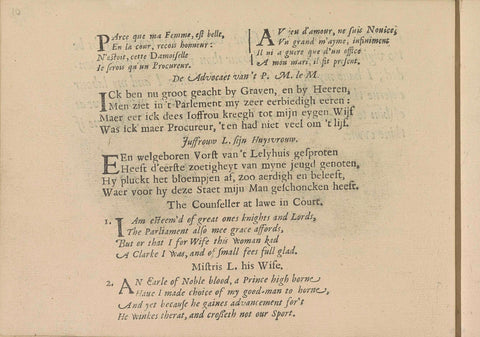 PArce que ma Femme, est belle,
En la cour, recois honneur:
N'astoit, cette Damoiselle
Je serois qu'un Procureur.
AV jeu d'amour, ne suis Novice,
Un grand m'ayme, infiniment
Il ni a guere que d'un office
A mon mari, il fit present.
De Advocaet van't P. M. le M.
ICk ben nu groot geacht by Graven, en by Heeren,
Men ziet in 't Parlement my zeer eerbiedigh eeren:
Maer eer ick dees Joffrou kreegh tot mijn eygen Wijf
Was ick maer Procureur, 't en had niet veel om 't lijf.
Juffrouw L. sijn Huysvrouw.
EEn welgeboren Vorst van 't Lelyhuis gesproten
Heeft d'eerste zoetigheyt van myne jeugd genoten,
Hy pluckt het bloempjen af, zoo aerdigh en beleeft,
Waer voor hy deze Staet mijn Man geschoncken heeft.
The Counseller at lawe in Court.
1. I Am esteem'd of great ones knights and Lords,
The Parliament also mee grace affords,
But or that I for Wife this woman had
A Clarke I was, and of small fees full glad.
Mistris L. his Wife.
2. AN Earle of Noble blood, a Prince high borne
Have i made choice of my good-man to horne,
And yet because he gaines advancement for't
He winkes therat, and crosseth not our Sport.